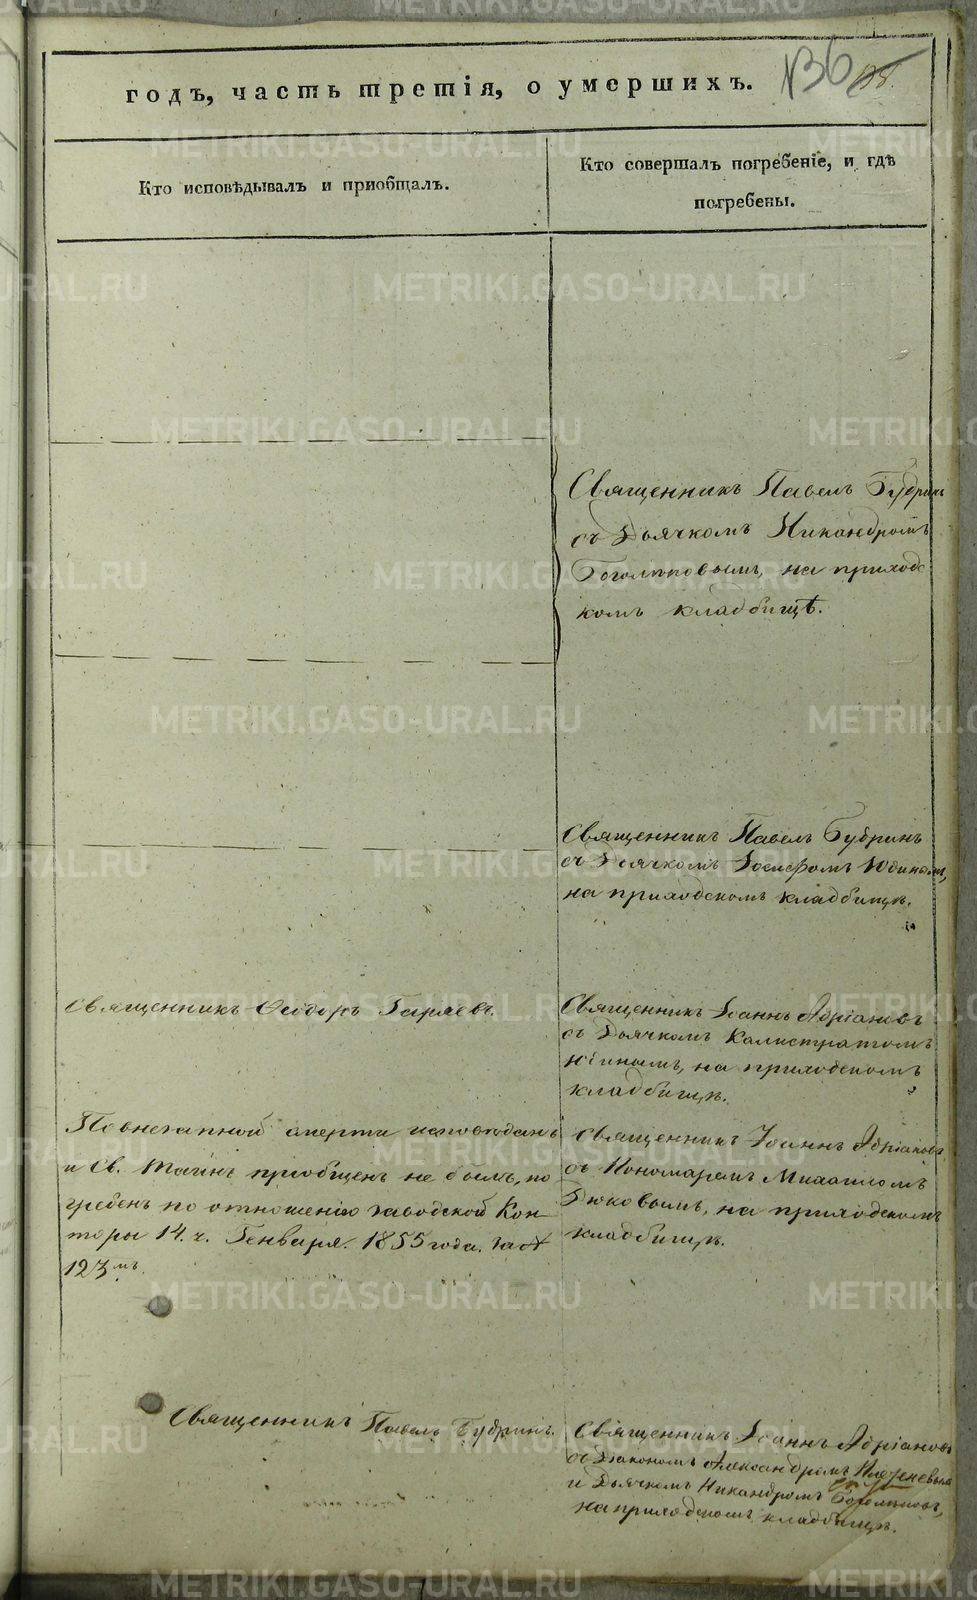 годъ, часть третія, о умершихъ.
№36
Кто исповѣдывалъ и приобщалъ.
Кто совершалъ погребеніе, и гдѣ
погребены.
Священникъ Павелъ Бубринъ
съ Дьячкомъ Никандромъ
Боголѣповымъ, на приход-
комъ кладбищѣ.
Священникъ Павелъ Бубринъ
съ Дьячкомъ Іосифомъ Юдинымъ,
на приходскомъ кладбищѣ.
Священникъ Ѳеодоръ
Священникъ Іоаннъ Адріановъ
съ Дьячкомъ Калистратомъ
Юдинымъ, на приходскомъ
кладбищѣ.
По внезапной смерти исповѣданъ
и Св. Таинъ пріобщенъ не былъ, по
гребенъ по отношенію заводской Кон-
торы 14. ч. Генваря. 1855 года. за №
123мъ
Священникъ Іоаннъ Адріановъ
съ Пономаремъ Михаиломъ
Дюковымъ, на приходскомъ
кладбищѣ.
Священникъ Павелъ Бубринъ.
Священникъ Іоаннъ Адріановъ
съ Діакономъ Александромъ
и Дьячкомъ Никандромъ Боголѣповымъ,
на приходскомъ кладбищѣ.
METRIKI.GASO-URAL.RU